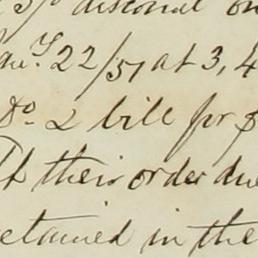 5% discount on
Jany. 22/51 at 3, 4
Do. 2 bill for $
their order due
retained in the